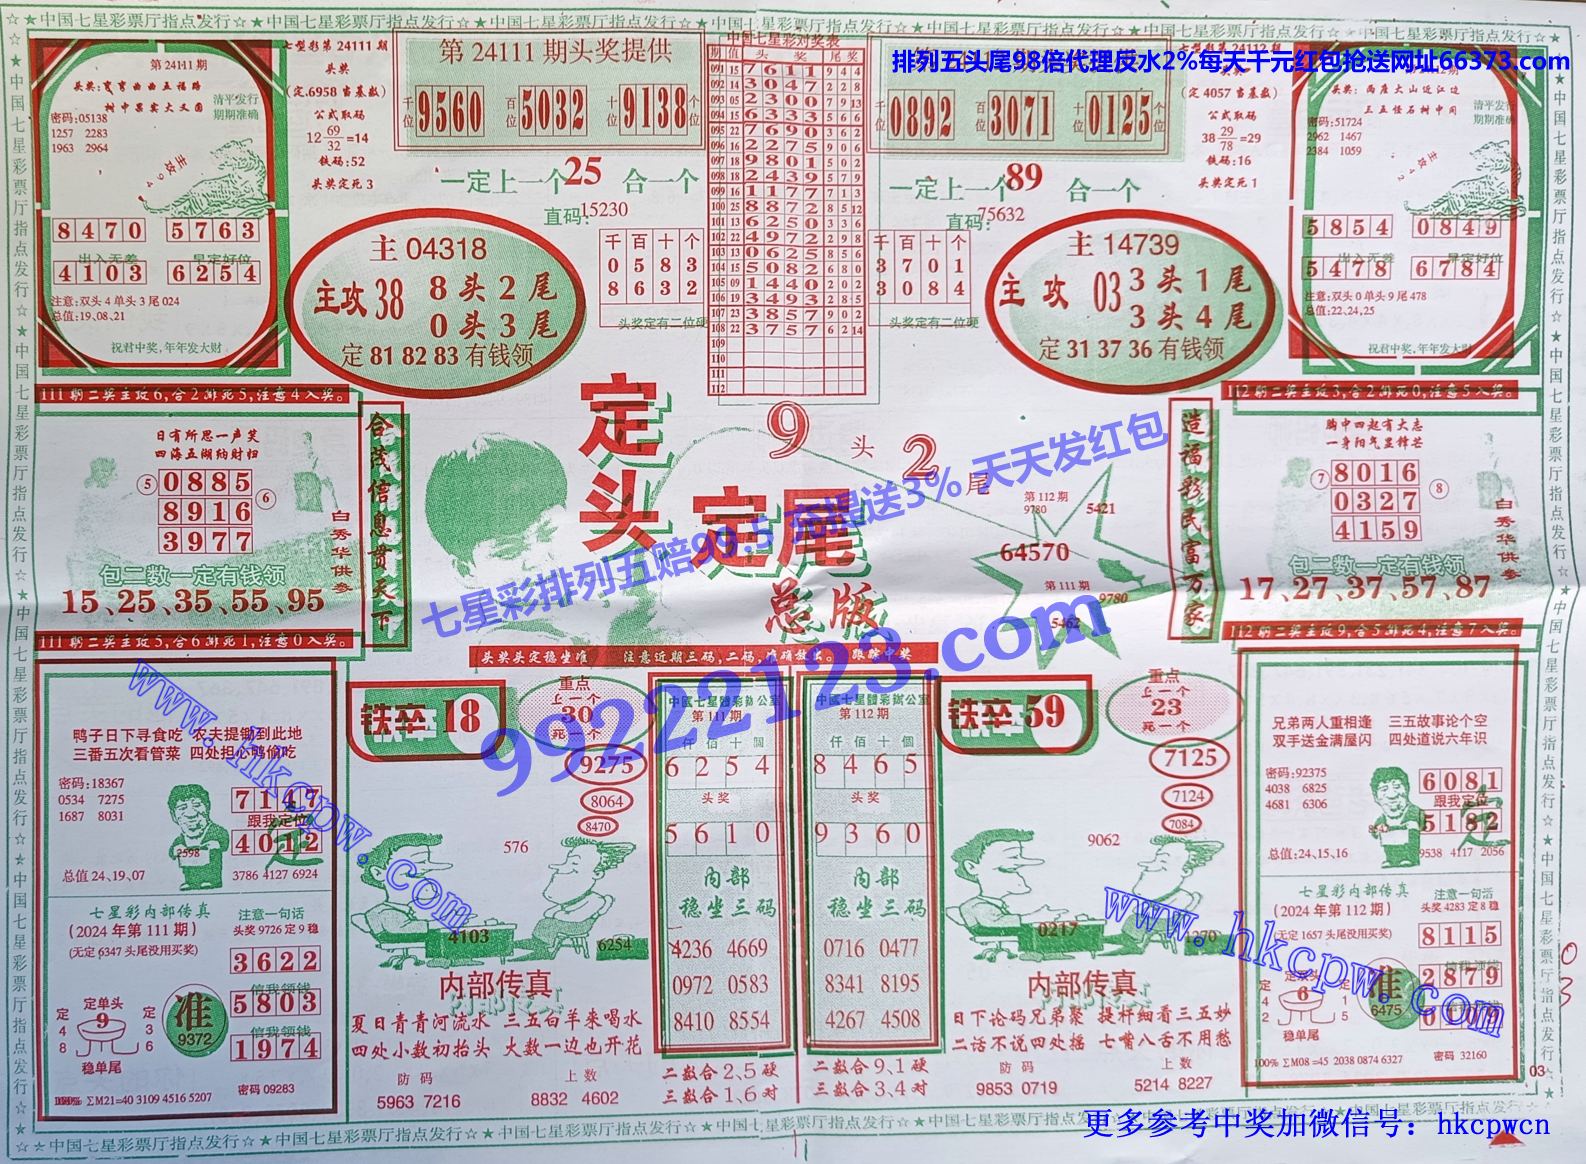 ☆★中国七星彩票厅指点发行☆★中国七星彩票厅指点发行☆★中国七星彩票厅指点发行☆★中国七星彩票厅指点发行
排列五头尾98倍代理反水2%每天千元红包抢送网址66373.com
第 24111 期
清平发行
期期准确
树中果实大又圆
密码:05138
1257 2283
1963 2964
主攻94
8470 5763
出入无差 早定好位
4103 6254
注意:双头 4 单头 3 尾 024
总值:19、08、21
祝君中奖,年年发大财
七型彩第 24111 期
头奖
(定.6958 当基数)
公式取码
12 69/32 =14
铁码:52
头奖定死 3
第 24111 期头奖提供
千位 9560 百位 5032 十位 9138 个位
一定上一个25 合一个
直码:15230
千百十个
0583
8632
头奖定有二位硬
主 04318
主攻 38 8 头 2 尾
0 头 3 尾
定 81 82 83 有钱领
中国七星彩对奖表
期 值 头 奖 尾 奖
091 15 7611 9 4 4
092 14 3047 2 2 8
093 05 2300 7 9 13
094 15 6333 5 6 6
095 22 7690 3 6 2
096 16 2275 9 0 6
097 18 9801 5 0 2
098 18 2439 5 7 9
099 16 1177 7 1 3
100 25 8872 8 5 12
101 13 6250 3 3 3
102 22 4972 2 9 8
103 13 0625 8 5 6
104 15 5082 6 8 0
105 09 1440 2 0 2
106 19 3493 2 8 5
107 23 3857 9 0 2
108 22 3757 6 2 14
109
110
111
112
千位 0892 百位 3071 十位 0125 个位
一定上一个89 合一个
直码:75632
千百十个
3701
3084
头奖定有二位硬
七型彩第 24112 期
头奖
(定 4057 当基数)
公式取码
38 29/78 =29
铁码:16
头奖定死 1
主 14739
主攻 03 3 头 1 尾
3 头 4 尾
定 31 37 36 有钱领
头奖:两座大山近江边
三五怪石树中间
清平发行
期期准确
密码:51724
2962 1467
2384 1059
主攻42
5854 0849
出入无差 早定好位
5478 6784
注意:双头 0 单头 9 尾 478
总值:22、24、25
祝君中奖,年年发大财
111 期二奖主攻 6,合 2 排死 5,注意 4 入奖。
日有所思一声笑
四海五湖纳财归
⑤ 0885 ⑥
8916
3977
包二数一定有钱领
15、25、35、55、95
白秀华供参
合茂信息贯天下
111 期二奖主攻 5,合 6 排死 1,注意 0 入奖。
定头 定尾
总版
9 头 2 尾
第 112 期
9780 5421
64570
第 111 期
9780
5462
头奖头定稳坐准 注意近期三码,二码,准确放出。 跟踪中奖
七星彩排列五赔99.5 充提送3% 天天发红包
99222123.com
造福彩民富万家
112 期二奖主攻 3,合 2 排死 0,注意 5 入奖。
胸中四起有大志
一身阳气显锋芒
⑦ 8016 ⑧
0327
4159
包二数一定有钱领
17、27、37、57、87
白秀华供参
112 期二奖主攻 9,合 5 排死 4,注意 7 入奖。
鸭子日下寻食吃 农夫提锄到此地
三番五次看管菜 四处担心鸭偷吃
密码:18367
0534 7275
1687 8031
7147
跟我定位
4012
2598
总值 24、19、07
3786 4127 6924
七星彩内部传真
(2024 年第 111 期)
(无定 6347 头尾没用买奖)
注意一句话
头奖 9726 定 9 稳
3622
信我领钱
5803
信我领钱
1974
定 4 8
定单头
9
稳单尾
定 3 6
准
9372
密码 09283
100% ΣM21=40 3109 4516 5207
www.hkcpw.com
铁卒 18
重点
上一个
30
死一个
9275
8064
8470
576
4103
6254
内部传真
夏日青青河流水 三五白羊来喝水
四处小数初抬头 大数一边也开花
防 码 上 数
5963 7216 8832 4602
中國七星體彩辦公室
第 111 期
仟佰十個
6254
头奖
5610
内部
稳坐三码
4236 4669
0972 0583
8410 8554
二数合 2、5 硬
三数合 1、6 对
中國七星體彩辦公室
第 112 期
仟佰十個
8465
头奖
9360
内部
稳坐三码
0716 0477
8341 8195
4267 4508
二数合 9、1 硬
三数合 3、4 对
铁卒 59
重点
上一个
23
死一个
7125
7124
7084
9062
0217
1270
内部传真
日下论码兄弟聚 提样细看三五妙
二话不说四处摇 七嘴八舌不用愁
防 码 上 数
9853 0719 5214 8227
兄弟两人重相逢 三五故事论个空
双手送金满屋闪 四处道说六年识
密码:92375
4038 6825
4681 6306
6081
跟我定位
5182
总值:24、15、16
9538 4117 2056
七星彩内部传真
(2024 年第 112 期)
(无定 1657 头尾没用买奖)
注意一句话
头奖 4283 定 8 稳
8115
信我领钱
2879
定 4 2
定双头
6
稳单尾
定 1 5
准
6475
100% ΣM08=45 2038 0874 6327 密码 32160
www.hkcpw.com
03
03
更多参考中奖加微信号: hkcpwcn
☆★中国七星彩票厅指点发行☆★中国七星彩票厅指点发行☆★中国七星彩票厅指点发行